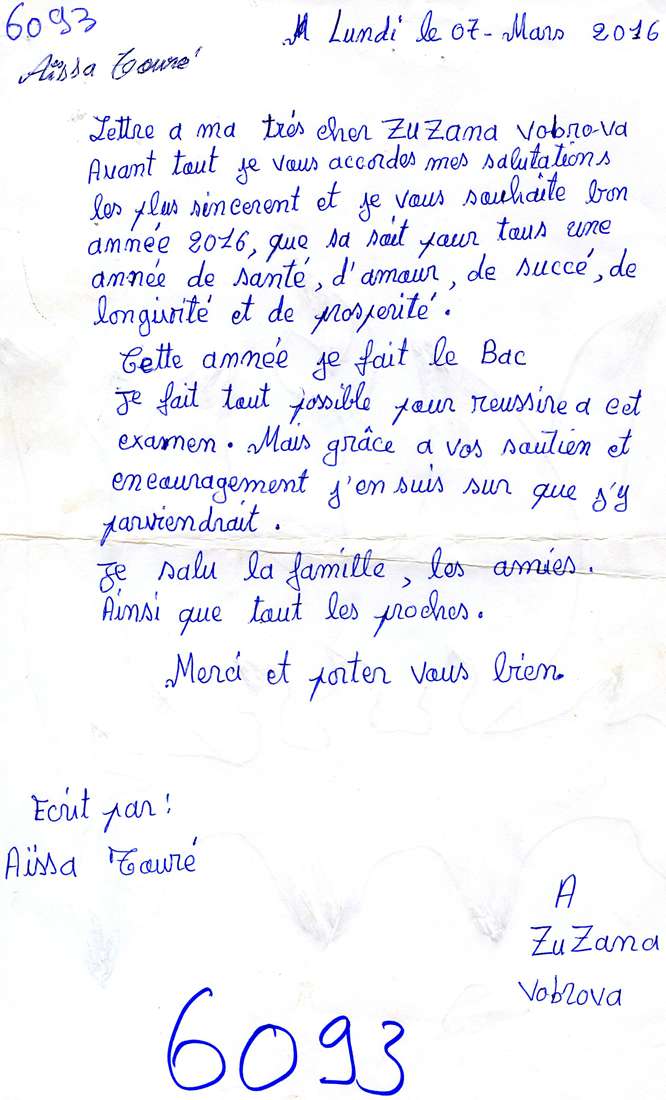 6093
Lundi le 07-Mars 2016
Aïssa Touré
Lettre a ma trés cher ZuZana Vobro-va
Avant tout je vous accordes mes salutations
les plus sincerent et je vous souhaite bon
année 2016, que sa soit pour tous une
année de santé, d'amour, de succé, de
longivité et de prosperité.
Cette année je fait le Bac
Je fait tout possible pour reussire a cet
examen. Mais grâce a vos soutien et
encouragement j'en suis sur que j'y
parviendrait.
Je salu la famille, les amies.
Ainsi que tout les proches.
Merci et porter vous bien.
Ecrit par:
Aïssa Touré
A
ZuZana
Vobrova
6093